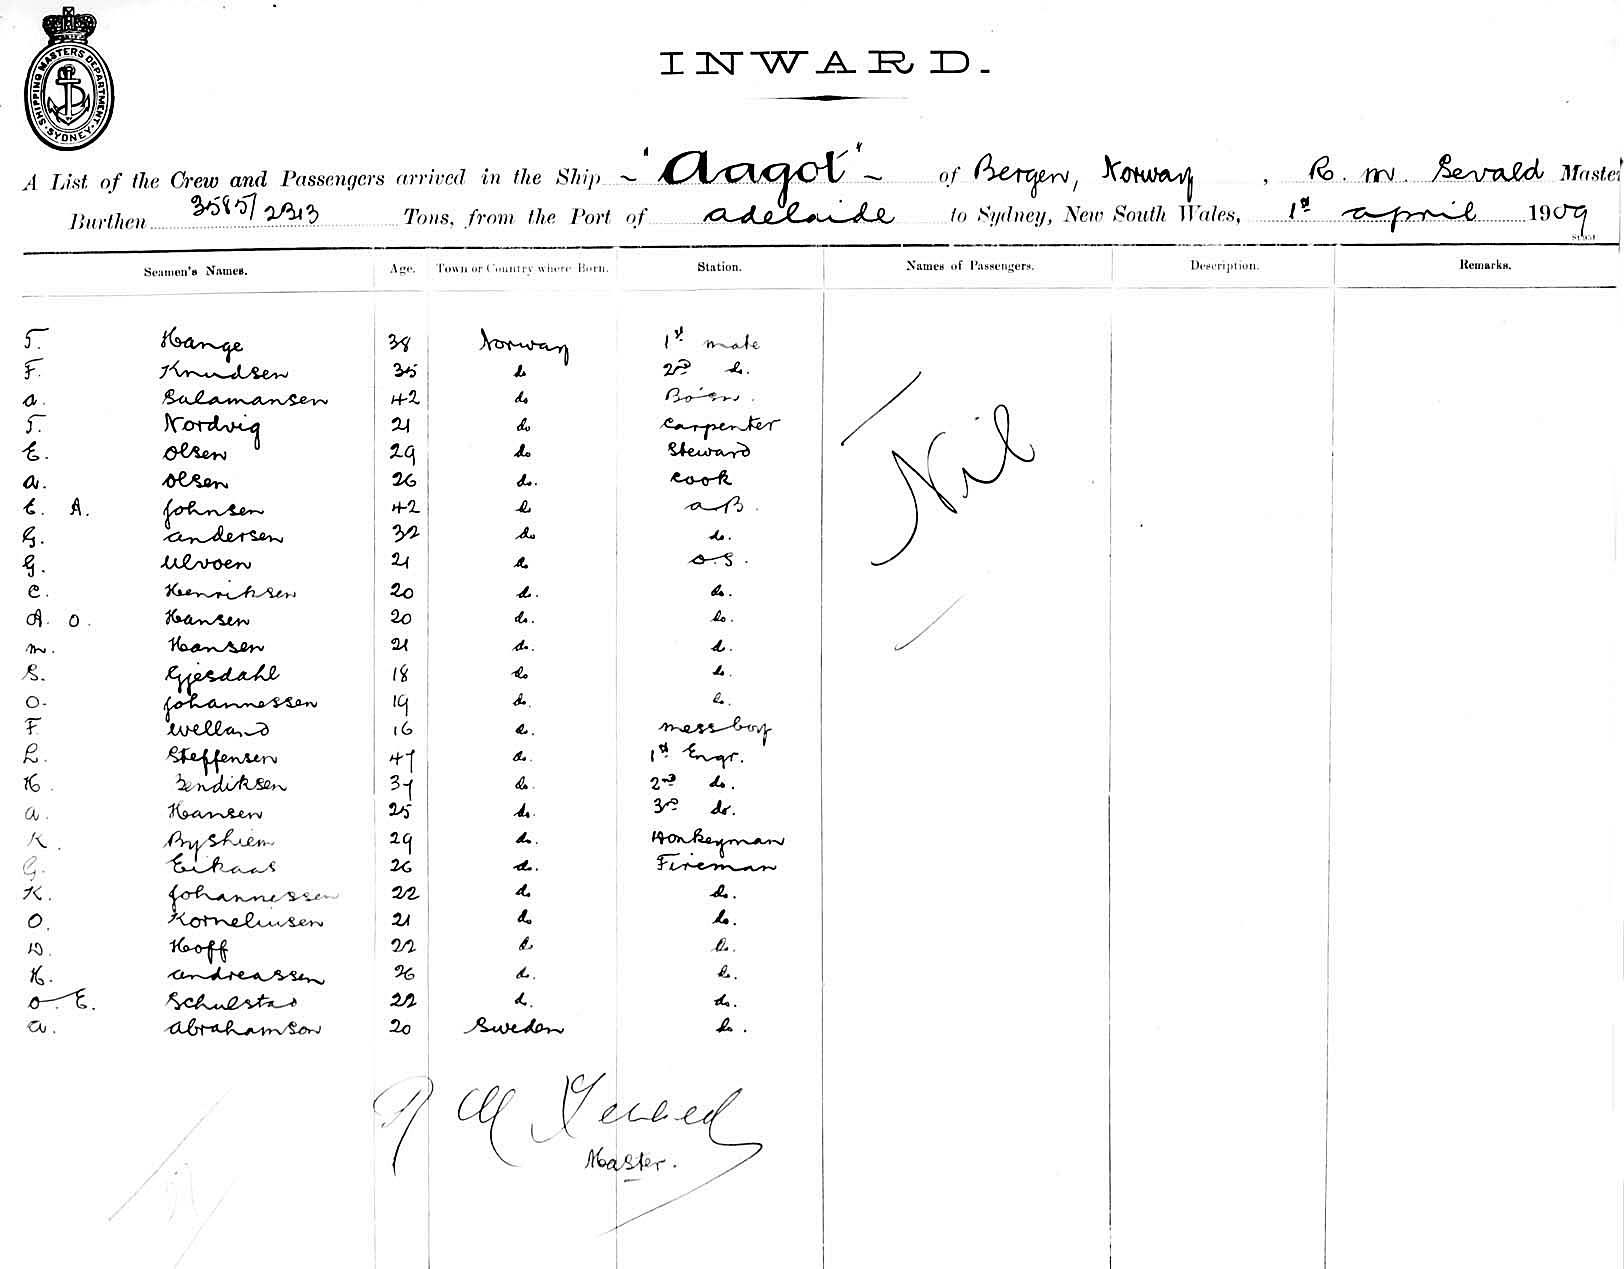 SHIPPING MASTERS DEPARTMENT · SYDNEY ·
INWARD.
A List of the Crew and Passengers arrived in the Ship ~ "Aagot" ~ of Bergen, Norway, R. M. Sevald Master
Burthen 3585/2313 Tons, from the Port of Adelaide to Sydney, New South Wales, 1st April 1909
Seamen's Names. Age. Town or Country where Born. Station. Names of Passengers. Description. Remarks.
T. Hange 38 Norway 1st mate
F. Knudsen 35 do 2nd do.
A. Salamansen 42 do Bo'sn.
T. Nordvig 21 do Carpenter
E. Olsen 29 do Steward
A. Olsen 26 do. Cook
E. A. Johnsen 42 do A B.
G. Andersen 32 do do.
G. Ulvoen 21 do O.S.
C. Henriksen 20 do. do.
A. O. Hansen 20 do. do.
M. Hansen 21 do. do.
S. Gjesdahl 18 do do.
O. Johannessen 19 do. do.
F. Welland 16 do. messboy
L. Steffensen 47 do. 1st Engr.
H. Bendiksen 37 do. 2nd do.
A. Hansen 25 do. 3rd do.
K. Byshiem 29 do. Donkeyman
G. Eikaas 26 do. Fireman
K. Johannessen 22 do do.
O. Korneliusen 21 do do.
D. Hoff 22 do do.
H. Andreassen 26 do. do.
O. E. Schulstad 22 do. do.
A. Abrahamson 20 Sweden do.
Nil
R M Sevald
Master.